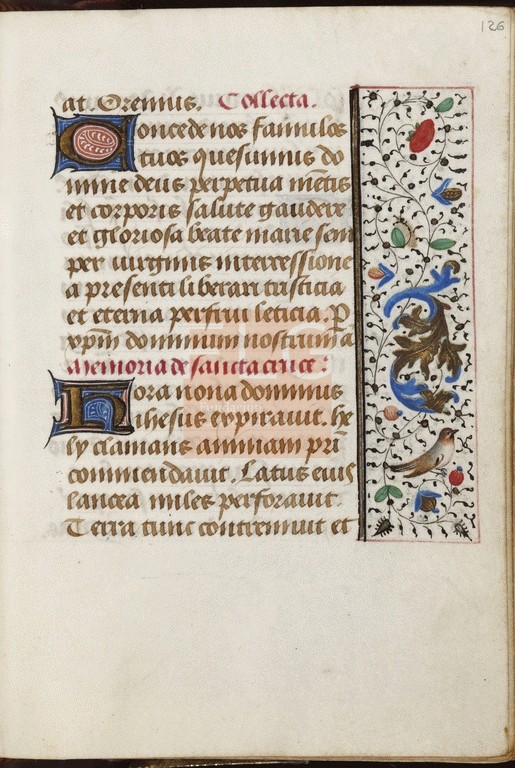 126
at. Oremus. Collecta.
Concede nos famulos
tuos quesumus do
mine deus perpetua mẽtis
et corporis salute gaudere
et gloriosa beate marie sem
per uirginis intercessione
a presenti liberari tristicia
et eterna perfrui leticia. P
xp̄m dominum nostrum a
Memoria de sancta cruce:
Hora nona dominus
ihesus expirauit. he
ly clamans animam pr̄i
commendauit. Latus eius
lancea miles perforauit.
Terra tunc contremuit et